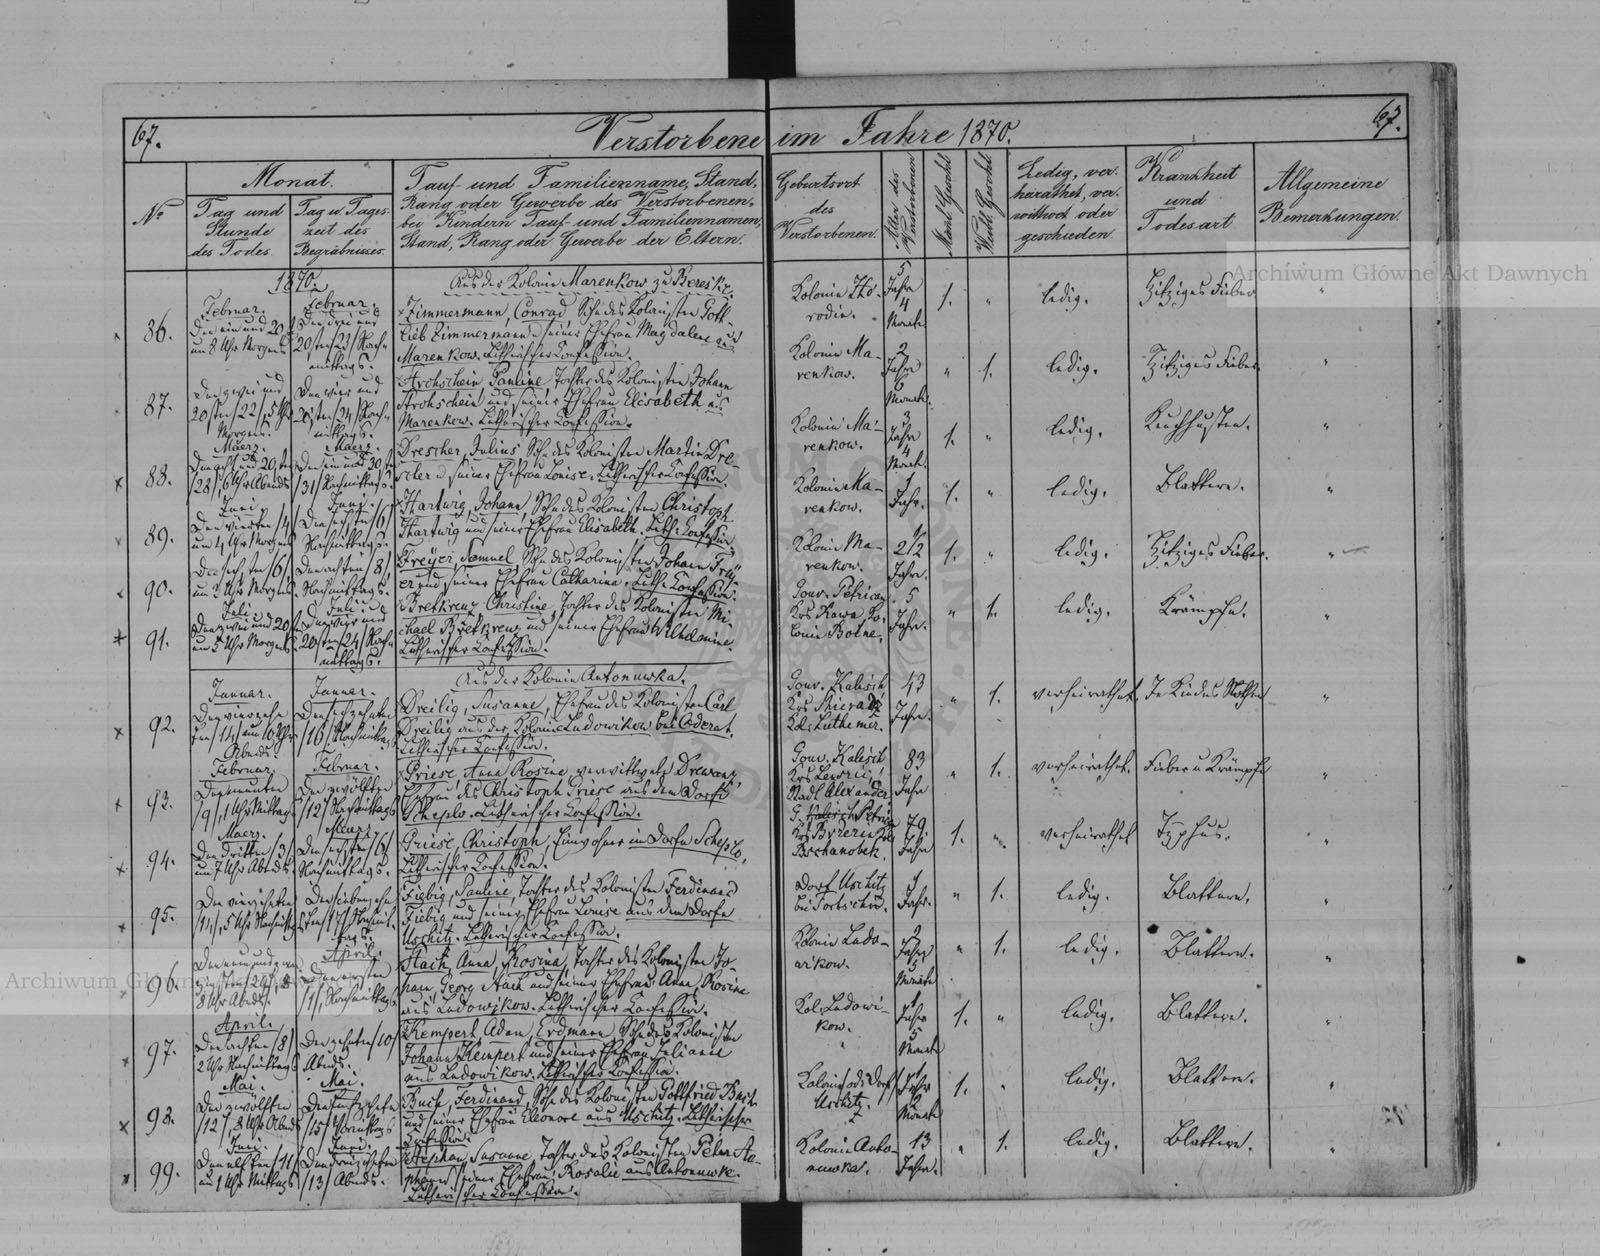 67.
Verstorbene im Jahre 1870.
67.
№
Monat.
Tag und
Stunde
des Todes
Tag u. Tages-
zeit des
Begräbnisses.
Tauf- und Familienname, Stand,
Rang oder Gewerbe des Verstorbenen,
bei Kindern Tauf- und Familiennamen,
Stand, Rang oder Gewerbe der Eltern.
Geburtsort
des
Verstorbenen.
Alter des
Verstorbenen
Mänl. Geschl.
Weibl. Geschl.
Ledig, ver-
heirathet, ver-
wittwet oder
geschieden.
Krankheit
und
Todesart
Allgemeine
Bemerkungen.
1870.
Aus der Kolonie Marenkow zu Bereske.
86.
Februar.
Den ein und 20
um 8 Uhr Morgens
Februar.
Den drei und
20sten /23/ Nach-
mittags.
Zimmermann, Conrad, Sohn des Kolonisten Gott-
lieb Zimmermann u. seiner Ehefrau Magdalene aus
Marenkow. Lutherischer Confession.
5
Jahre
4
Monate
1.
"
ledig.
Hitziges Fieber
"
87.
Den zwei und
20sten /22/, 5 Uhr
Morgens.
Den vier und
20sten /24/ Nach-
mittags.
Archschein, Pauline, Tochter des Kolonisten Johann
Archschein und seiner Ehefrau Elisabeth aus
Marenkow. Lutherischer Confession.
Kolonie Ma-
renkow.
2
Jahre
6
Monate.
"
1.
ledig.
Hitziges Fieber.
"
88.
Maerz.
/28/, 6 Uhr Abends
Maerz.
/31/ Nachmittags.
Drescher, Julius, Sohn des Kolonisten Martin Dre-
scher u. seiner Ehefrau Louise. Lutherischer Confession.
Kolonie Ma-
renkow.
3
Jahre
4
Monate.
1.
"
ledig.
Keuchhusten.
"
89.
Juni.
Den vierten /4/
um 4 Uhr Morgens
Juni.
Den sechsten /6/
Nachmittags.
Hartwig, Johann, Sohn des Kolonisten Christoph
Hartwig und seiner Ehefrau Elisabeth. Luth. Confession.
Kolonie Ma-
renkow.
1
Jahr.
1.
"
ledig.
Blattern.
"
90.
Den sechsten /6/
Den achten /8/
Nachmittags.
Freyer, Samuel, Sohn des Kolonisten Johann Frey-
er und seiner Ehefrau Catharina. Luth. Confession.
Kolonie Ma-
renkow.
2 1/2
Jahre.
1.
"
ledig.
Hitziges Fieber.
"
91.
Juli
um 5 Uhr Morgens
Juli.
Den vier und
20sten /24/ Nach-
mittags.
Bretkreuz, Christine, Tochter des Kolonisten Mi-
chael Bretkreuz und seiner Ehefrau Wilhelmine.
Lutherischer Confession.
5
Jahre.
"
1.
ledig.
Krämpfe.
"
Aus der Kolonie Antonuwka.
92.
Januar.
Den vierzehn-
ten /14/ um 10 Uhr
Abends.
Januar.
Den sechszehnten
/16/ Nachmittags
Dreilig, Susanne, Ehefrau des Kolonisten Carl
Dreilig aus der Kolonie Ludowikow bei Oderat.
Lutherischer Confession.
Gouv. Kalisch
Krs Sieradz
43
Jahre.
"
1.
verheirathet.
In Kindes Nöthen
"
93.
Februar.
Den neunten
/9/, 1 Uhr Mittags
Februar.
Den zwölften
/12/ Nachmittags
Griese, Anna Rosine, verwittwete
Ehefrau des Christoph Griese aus dem Dorfe
Scheplo. Lutherischer Confession.
Gouv. Kalisch
Stadt Alexander
83
Jahr
"
1.
verheirathet.
Fieber u. Krämpfe
"
94.
Maerz.
Den dritten /3/
um 7 Uhr Abends
Maerz.
Den sechsten /6/
Nachmittags.
Griese, Christoph, Einwohner im Dorfe Scheplo,
Lutherischer Confession.
79
Jahre
1.
"
verheirathet
Typhus.
"
95.
Den vierzehnten
/14/, 5 Uhr Nachmittags
Den siebenzehn-
ten /17/ Nachmit-
tags.
Fiebig, Pauline, Tochter des Kolonisten Ferdinand
Fiebig und seiner Ehefrau Louise aus dem Dorfe
Uschitz. Lutherischer Confession.
Dorf Uschitz
bei Tortschin.
1
Jahr.
"
1.
ledig.
Blattern.
"
96.
8 Uhr Abends.
April.
Den ersten
/1/, Nachmittags
Stach, Anna, Rosina, Tochter des Kolonisten Jo-
hann, Georg Stach und seiner Ehefrau Anna, Rosine
aus Ludowikow. Lutherischer Confession.
Kolonie Ludo-
wikow.
2
Jahre
5
Monate
"
1.
ledig.
Blattern.
"
97.
April.
Den achten /8/
2 Uhr Nachmittags
Den zehnten /10/
Abends.
Kempert, Adam, Erdmann, Sohn des Kolonisten
Johann Kempert und seiner Ehefrau Julianne
aus Ludowikow. Lutherischer Confession.
Kol. Ludowi-
kow.
1
Jahr
5
Monate
1.
"
ledig.
Blattern.
"
98.
Mai.
Den zwölften
/12/, 8 Uhr Abends
Mai.
Den fünfzehnten
/15/ Vormittags
Buch, Ferdinand, Sohn des Kolonisten Gottfried Buch
und seiner Ehefrau Eleonore aus Uschitz. Lutherischer
Confession.
Uschitz.
1
Jahr
2
Monate
1.
"
ledig.
Blattern.
"
99.
Juni
Den elften /11/
um 1 Uhr Mittags
Juni.
Den dreizehnten
/13/ Abends.
Stephan, Susanne, Tochter des Kolonisten Peter Ste-
phan u. seiner Ehefrau Rosalie aus Antonuwka.
Lutherischer Confession.
Kolonie Anto-
nuwka.
13
Jahre.
"
1.
ledig.
Blattern.
"
Archiwum Główne Akt Dawnych
Archiwum Główne